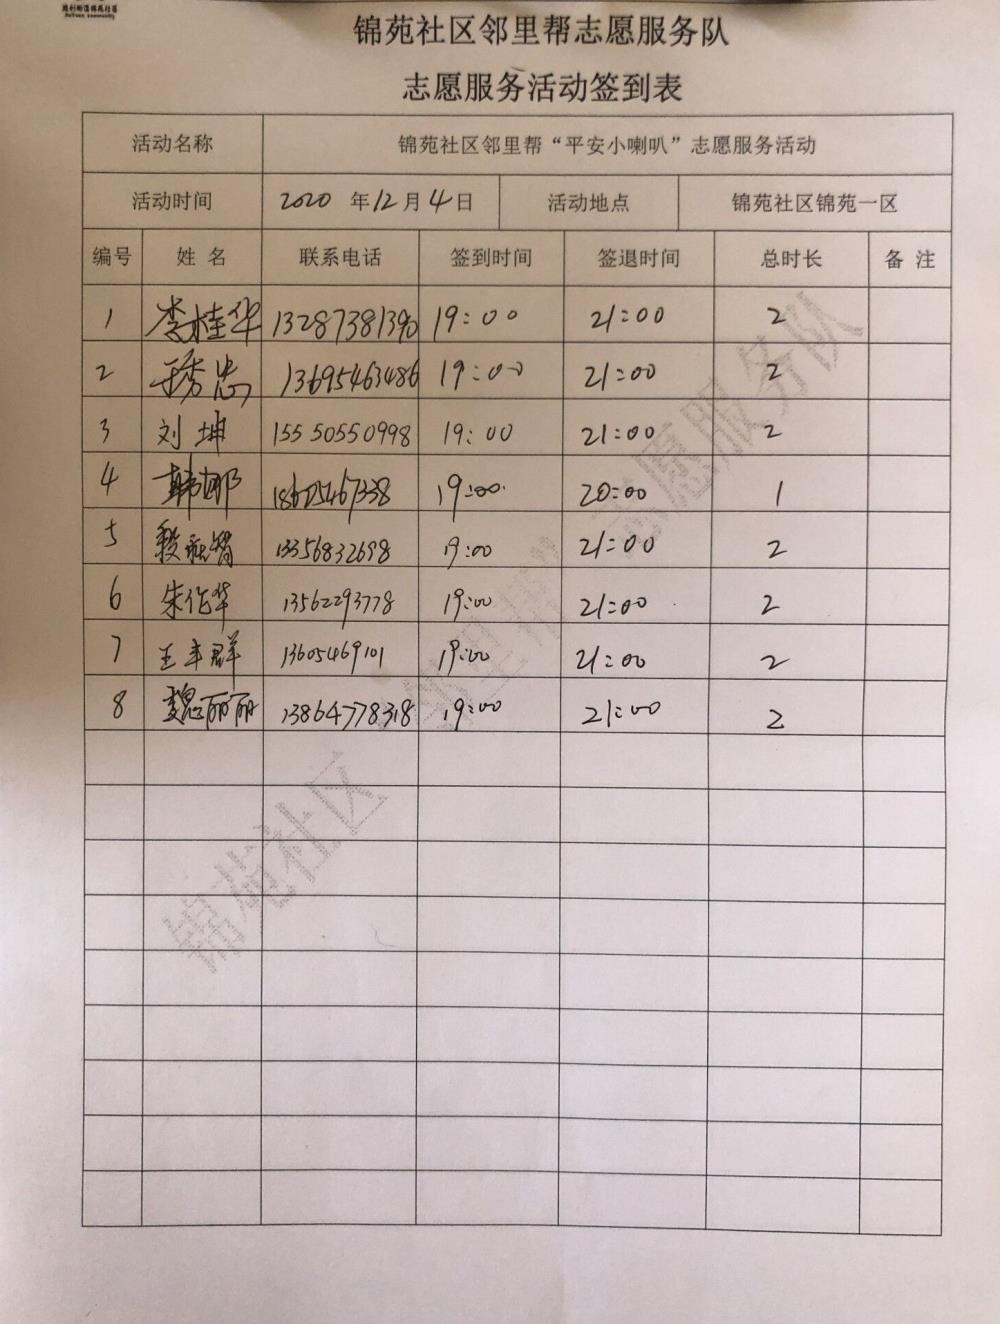 锦苑社区邻里帮志愿服务队
志愿服务活动签到表
活动名称 锦苑社区邻里帮“平安小喇叭”志愿服务活动
活动时间 2020 年 12 月 4 日 活动地点 锦苑社区锦苑一区
编号 姓 名 联系电话 签到时间 签退时间 总时长 备 注
1 李桂华 13287381390 19:00 21:00 2
2 秀忠 13695463486 19:00 21:00 2
3 刘坤 15550550998 19:00 21:00 2
4 韩娜 19:00 20:00 1
5 13356832698 19:00 21:00 2
6 朱作华 13562293778 19:00 21:00 2
7 王丰群 13605469101 19:00 21:00 2
8 魏丽丽 13864778318 19:00 21:00 2
锦苑社区“邻里帮”志愿服务队